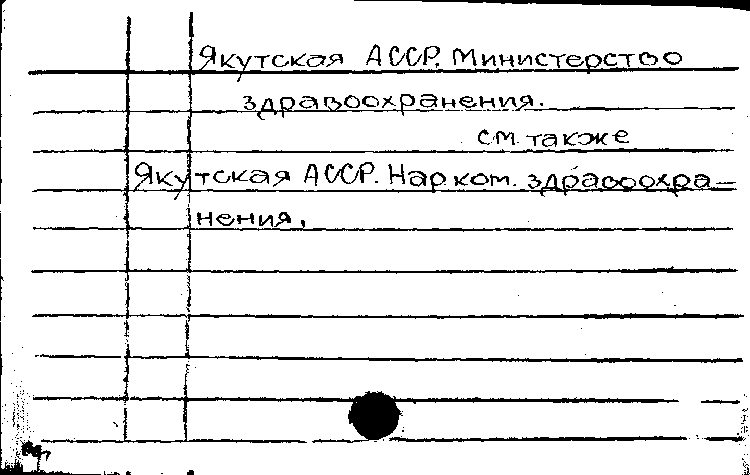 Якутская АССР. Министерство
здравоохранения.
см. также
Якутская АССР. Нар. ком. здравоохра-
нения.